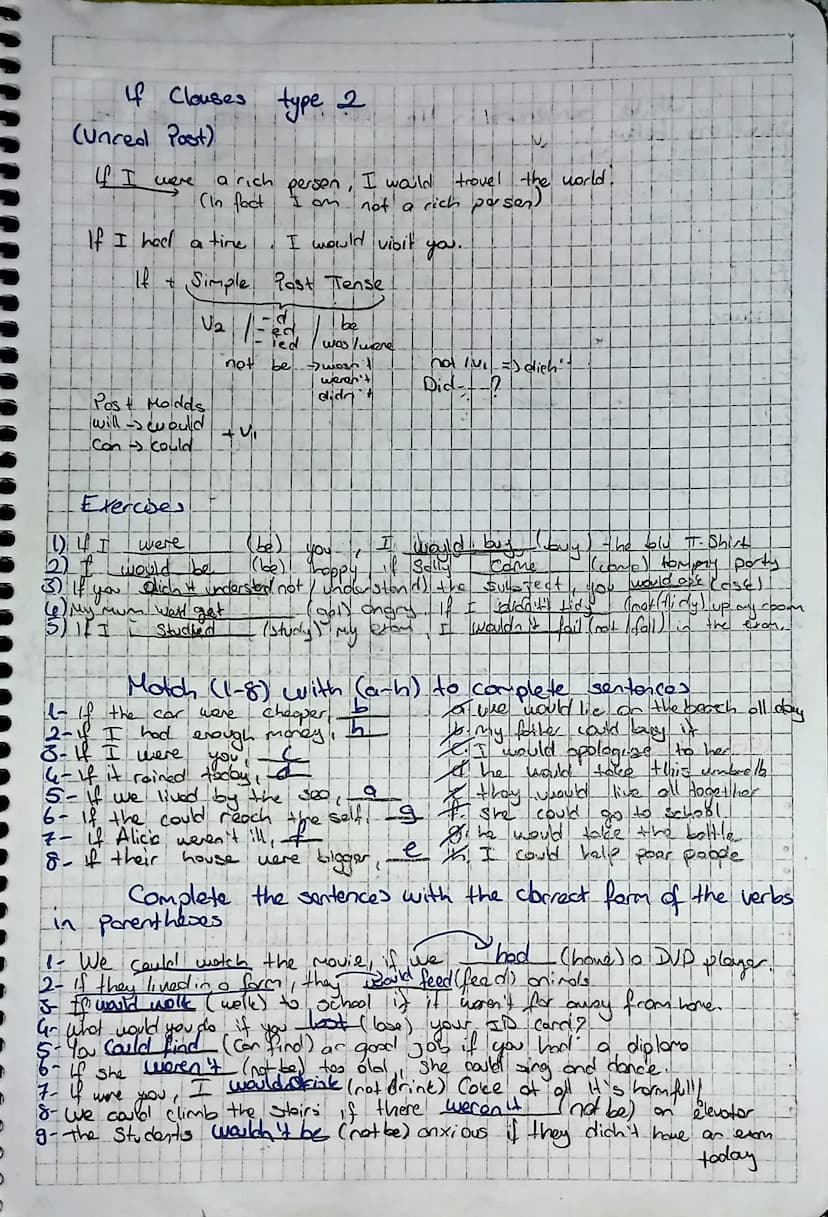 If Clauses type 2
(Unreal Past)
If I were a rich person, I would travel the world.
(In fact I am not a rich person)
If I had a time, I would visit you.
If + Simple Past Tense
V2 / -d / be
-ed / was/were
-ied
not be → wasn't not /V1 => didn't
weren't Did ___?
didn't
Past Modals
will → would + V1
Can → could
Exercises
1) If I were (be) you, I would buy (buy) the T-Shirt
2) I would be (be) happy if Sally came (come) to my party
3) If you didn't understand (not / understand) the subject, you would ask (ask)
4) My mum get angry If I didn't tidy (not / tidy) up my room
5) If I studied (study) my exam, I wouldn't fail (not / fail) in the exam.
Match (1-8) with (a-h) to complete sentences
1- If the car were cheaper, b a we would lie on the beach all day
2- if I had enough money, h b my father could buy it
3- If I were you, c c I would apologize to her
4- If it rained today, d d he would take this umbrella
5- If we lived by the sea, a e they would live all together
6- If the could reach the self, g f she could go to school
7- if Alice weren't ill, f g he would take the bottle
8- if their house were bigger, e h I could help poor people
Complete the sentences with the correct form of the verbs
in parentheses
1- We could watch the movie, if we had (have) a DVD player.
2- if they lived in a farm, they would feed (feed) animals
3- I would walk (walk) to school if it weren't far away from home.
4- What would you do if you lost (lose) your ID card?
5- You could find (can find) a good job if you had a diploma
6- If she weren't (not be) too old, she could sing and dance.
7- if were you, I would drink (not drink) Coke at all It's harmful!
8- We could climb the stairs if there weren't (not be) an elevator
9- the students wouldn't be (not be) anxious if they didn't have an exam
today